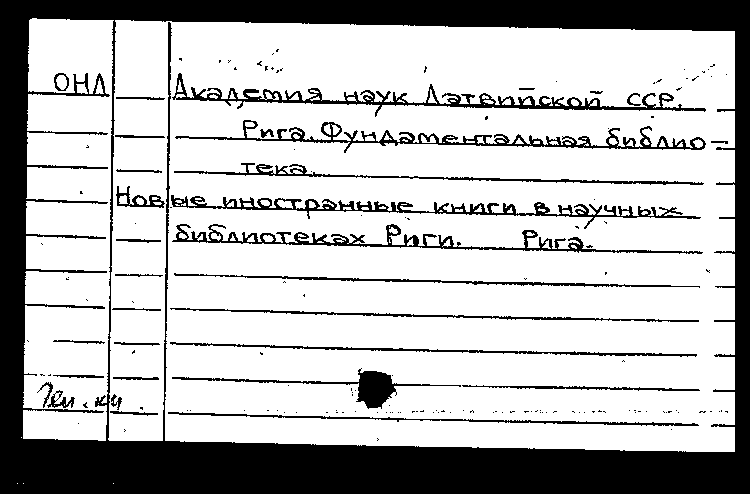 ОНЛ Академия наук Латвийской ССР.
Рига. Фундаментальная библио-
тека.
Новые иностранные книги в научных
библиотеках Риги. Рига.